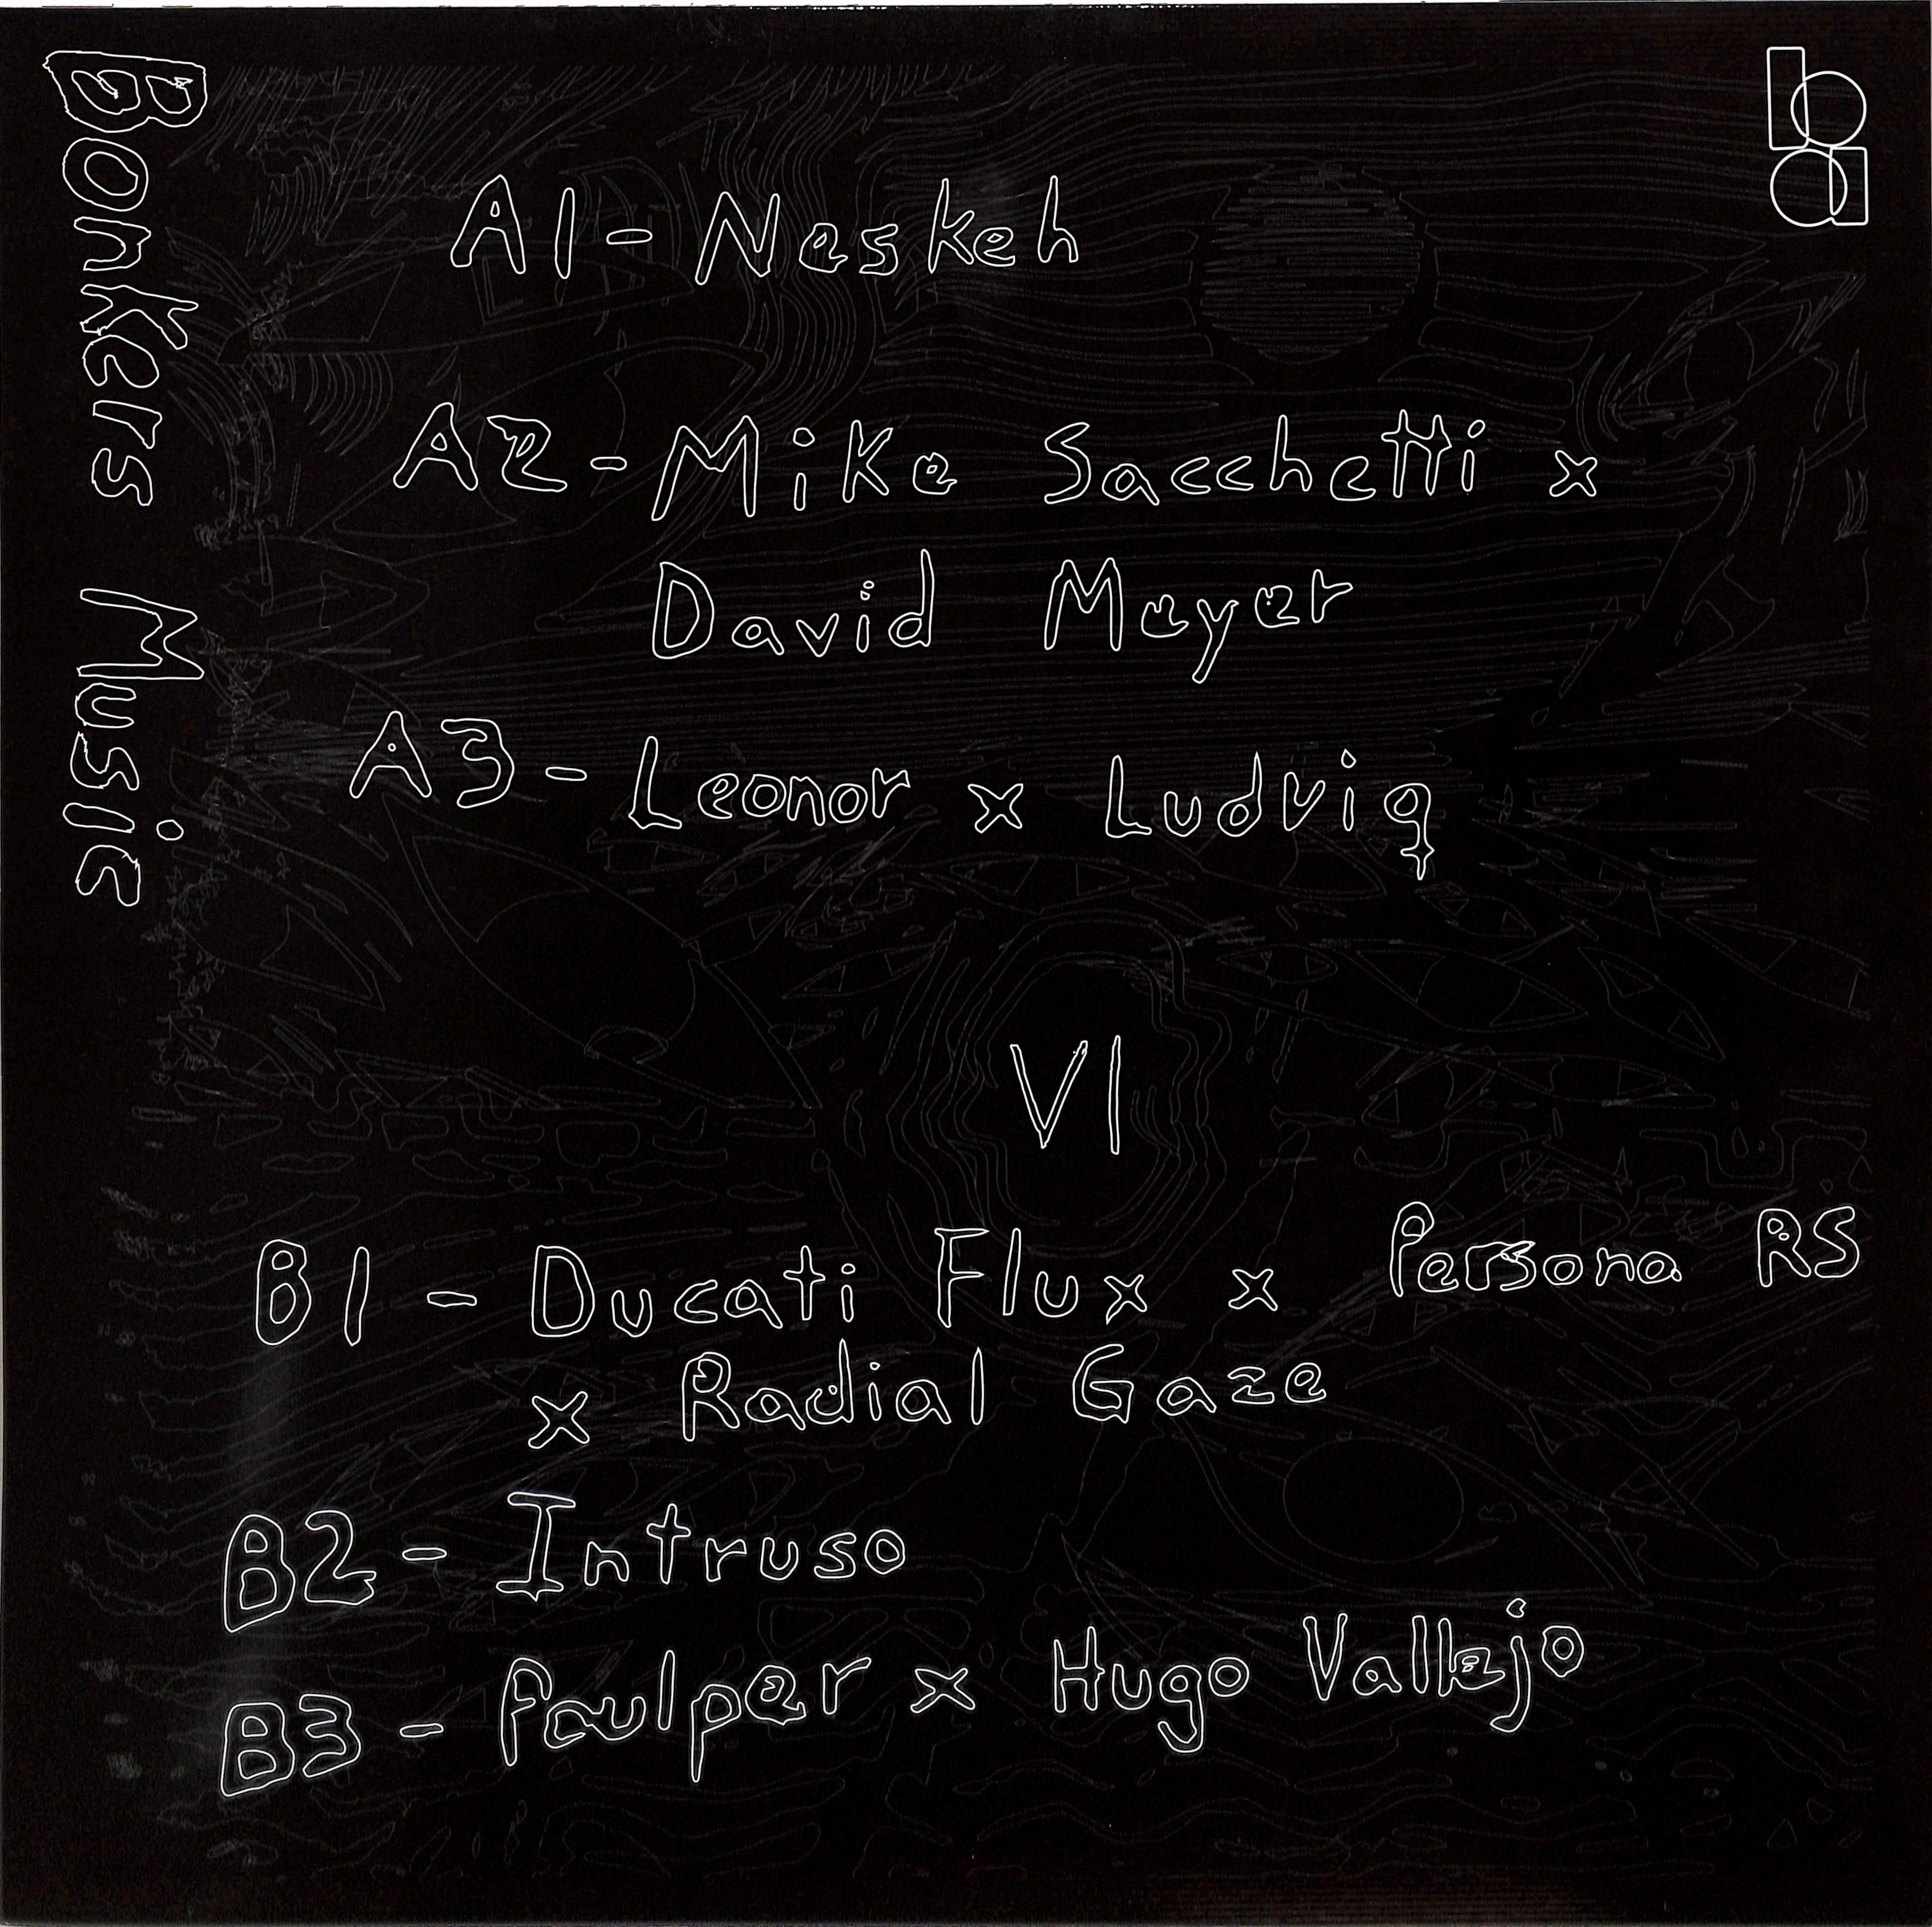 Bonkers Music
ba
A1 - Neskeh
A2 - Mike Sacchetti x
David Meyer
A3 - Leonor x Ludvig
VI
B1 - Ducati Flux x Persona RS
x Radial Gaze
B2 - Intruso
B3 - Paulper x Hugo Vallejo